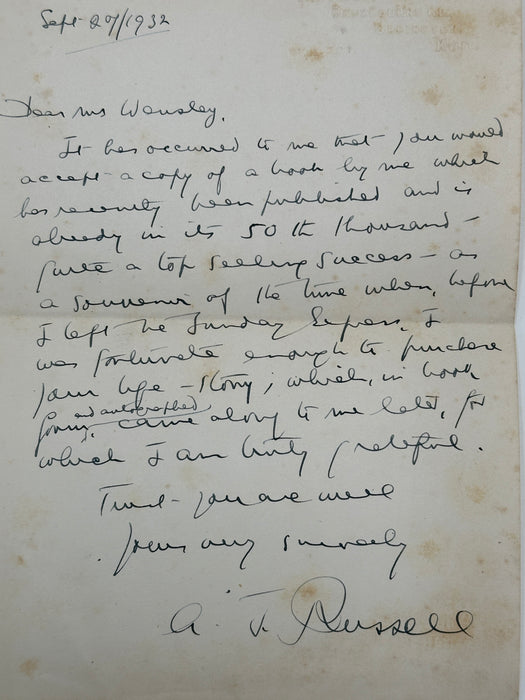 Sept 27/1932
Dear Mr Wensley,
It has occurred to me that you would
accept a copy of a book by me which
has recently been published and is
already in its 50 th thousand -
quite a top selling success - as
a souvenir of the time when, before
I left the Sunday Express, I
was fortunate enough to purchase
your life - story; which, in book
form, and autographed, came along to me later, for
which I am truly grateful.
Trust you are well
yours very sincerely
A. J. Russell